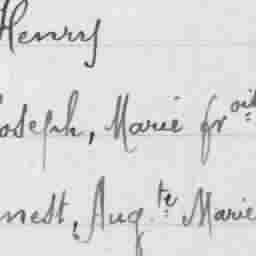 Henry
oseph, Marie fr^ois
nest, Aug.te Marie